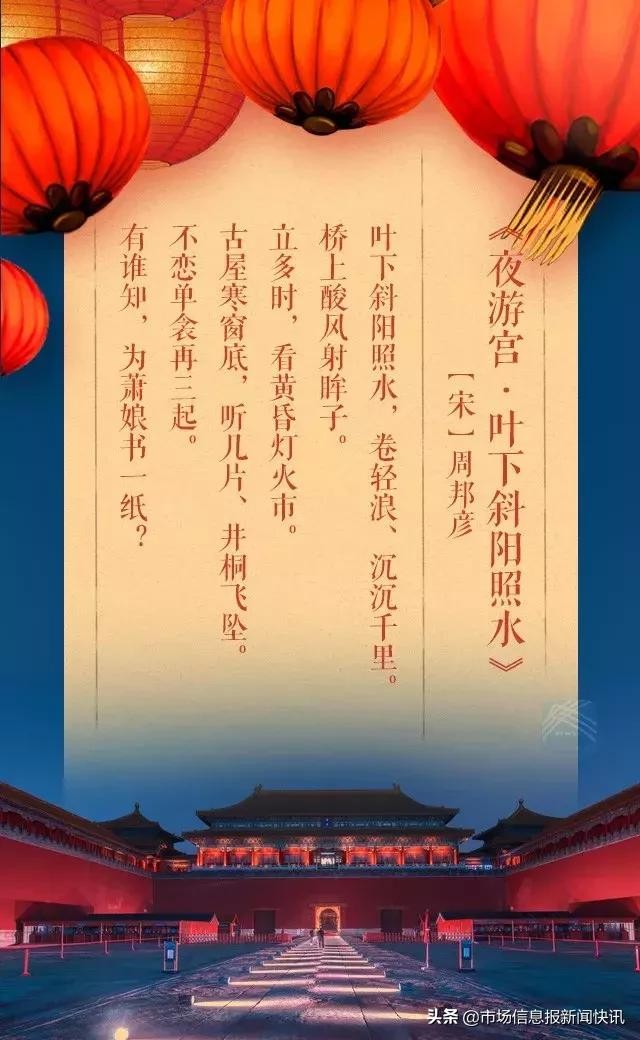 《夜游宫·叶下斜阳照水》
［宋］周邦彦
叶下斜阳照水，卷轻浪、沉沉千里。
桥上酸风射眸子。
立多时，看黄昏灯火市。
古屋寒窗底，听几片、井桐飞坠。
不恋单衾再三起。
有谁知，为萧娘书一纸？
头条 @市场信息报新闻快讯